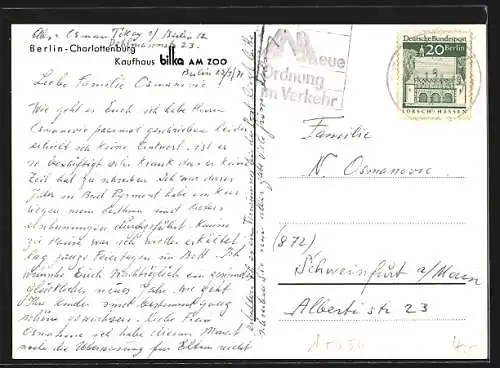 Abs. Osman Tokay 1/ Berlin 12
Dahlmannstr. 23.
Berlin-Charlottenburg
Kaufhaus bilka AM ZOO
Berlin 22/1/71
Liebe Familie Osmanovic
Wie geht es Euch ich habe Herrn
Osmanovic paarmal geschrieben leider
erhielt ich keine Antwort. ist er
so beschäftigt oder Krank das er keine
Zeit hat zu schreiben. Ich war dieses
Jahr in Bad Pyrmont habe ein Kur
wegen mein Asthma und dieses
durchgeführt. Kaum
zu Hause war ich wieder erkältet
lag ganze Feiertagen im Bett. Ich
wünsche Euch Nachträglich ein gesundes
glückliches neues Jahr. Wie geht
Ihre Kinder sind bestimmt ganz
schöne gewachsen. Liebe Frau
Osmanovic ich habe diesen Monat
noch die Überweisung für Eltern nicht
neue
Ordnung
im Verkehr
Deutsche Bundespost
20 Berlin
LORSCH/HESSEN
Familie
N. Osmanovic
(872)
Schweinfurt a/Main
Alberti str 23